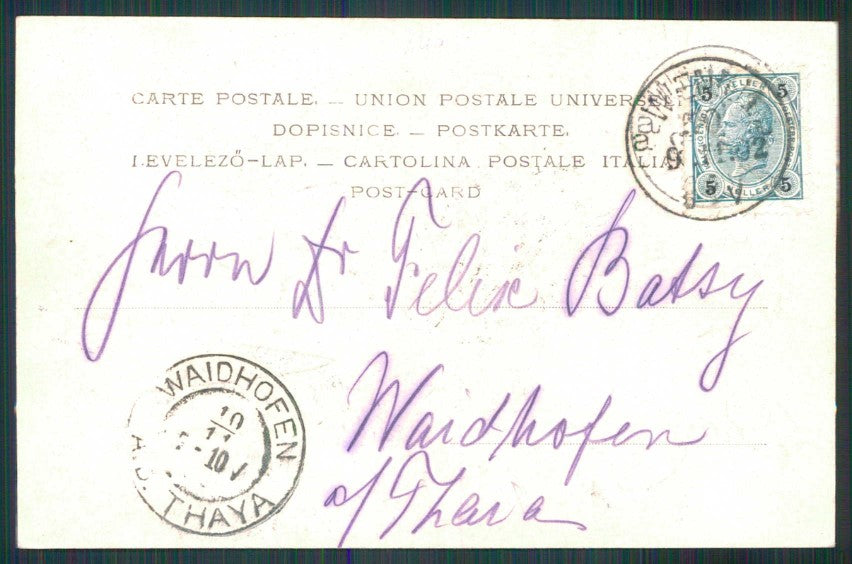 CARTE POSTALE. — UNION POSTALE UNIVERSELLE
DOPISNICE. — POSTKARTE.
LEVELEZŐ-LAP. — CARTOLINA POSTALE ITALIA
POST-CARD
5 5
5 HELLER 5
9 02
Herrn Dr Felix Batsy
Waidhofen
a/Thaia
WAIDHOFEN
10
11
-10 V
THAYA